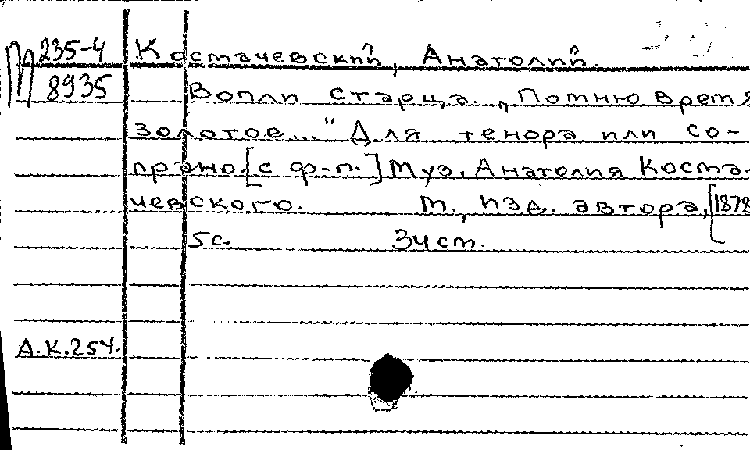 М 235-4
8935
Костачевский, Анатолий.
Вопли старца. „Помню время
золотое..." Для тенора или со-
прано [с ф-п.] Муз. Анатолия Коста-
чевского. М., изд. автора, [1878
5с. 34 ст.
А.К.254.